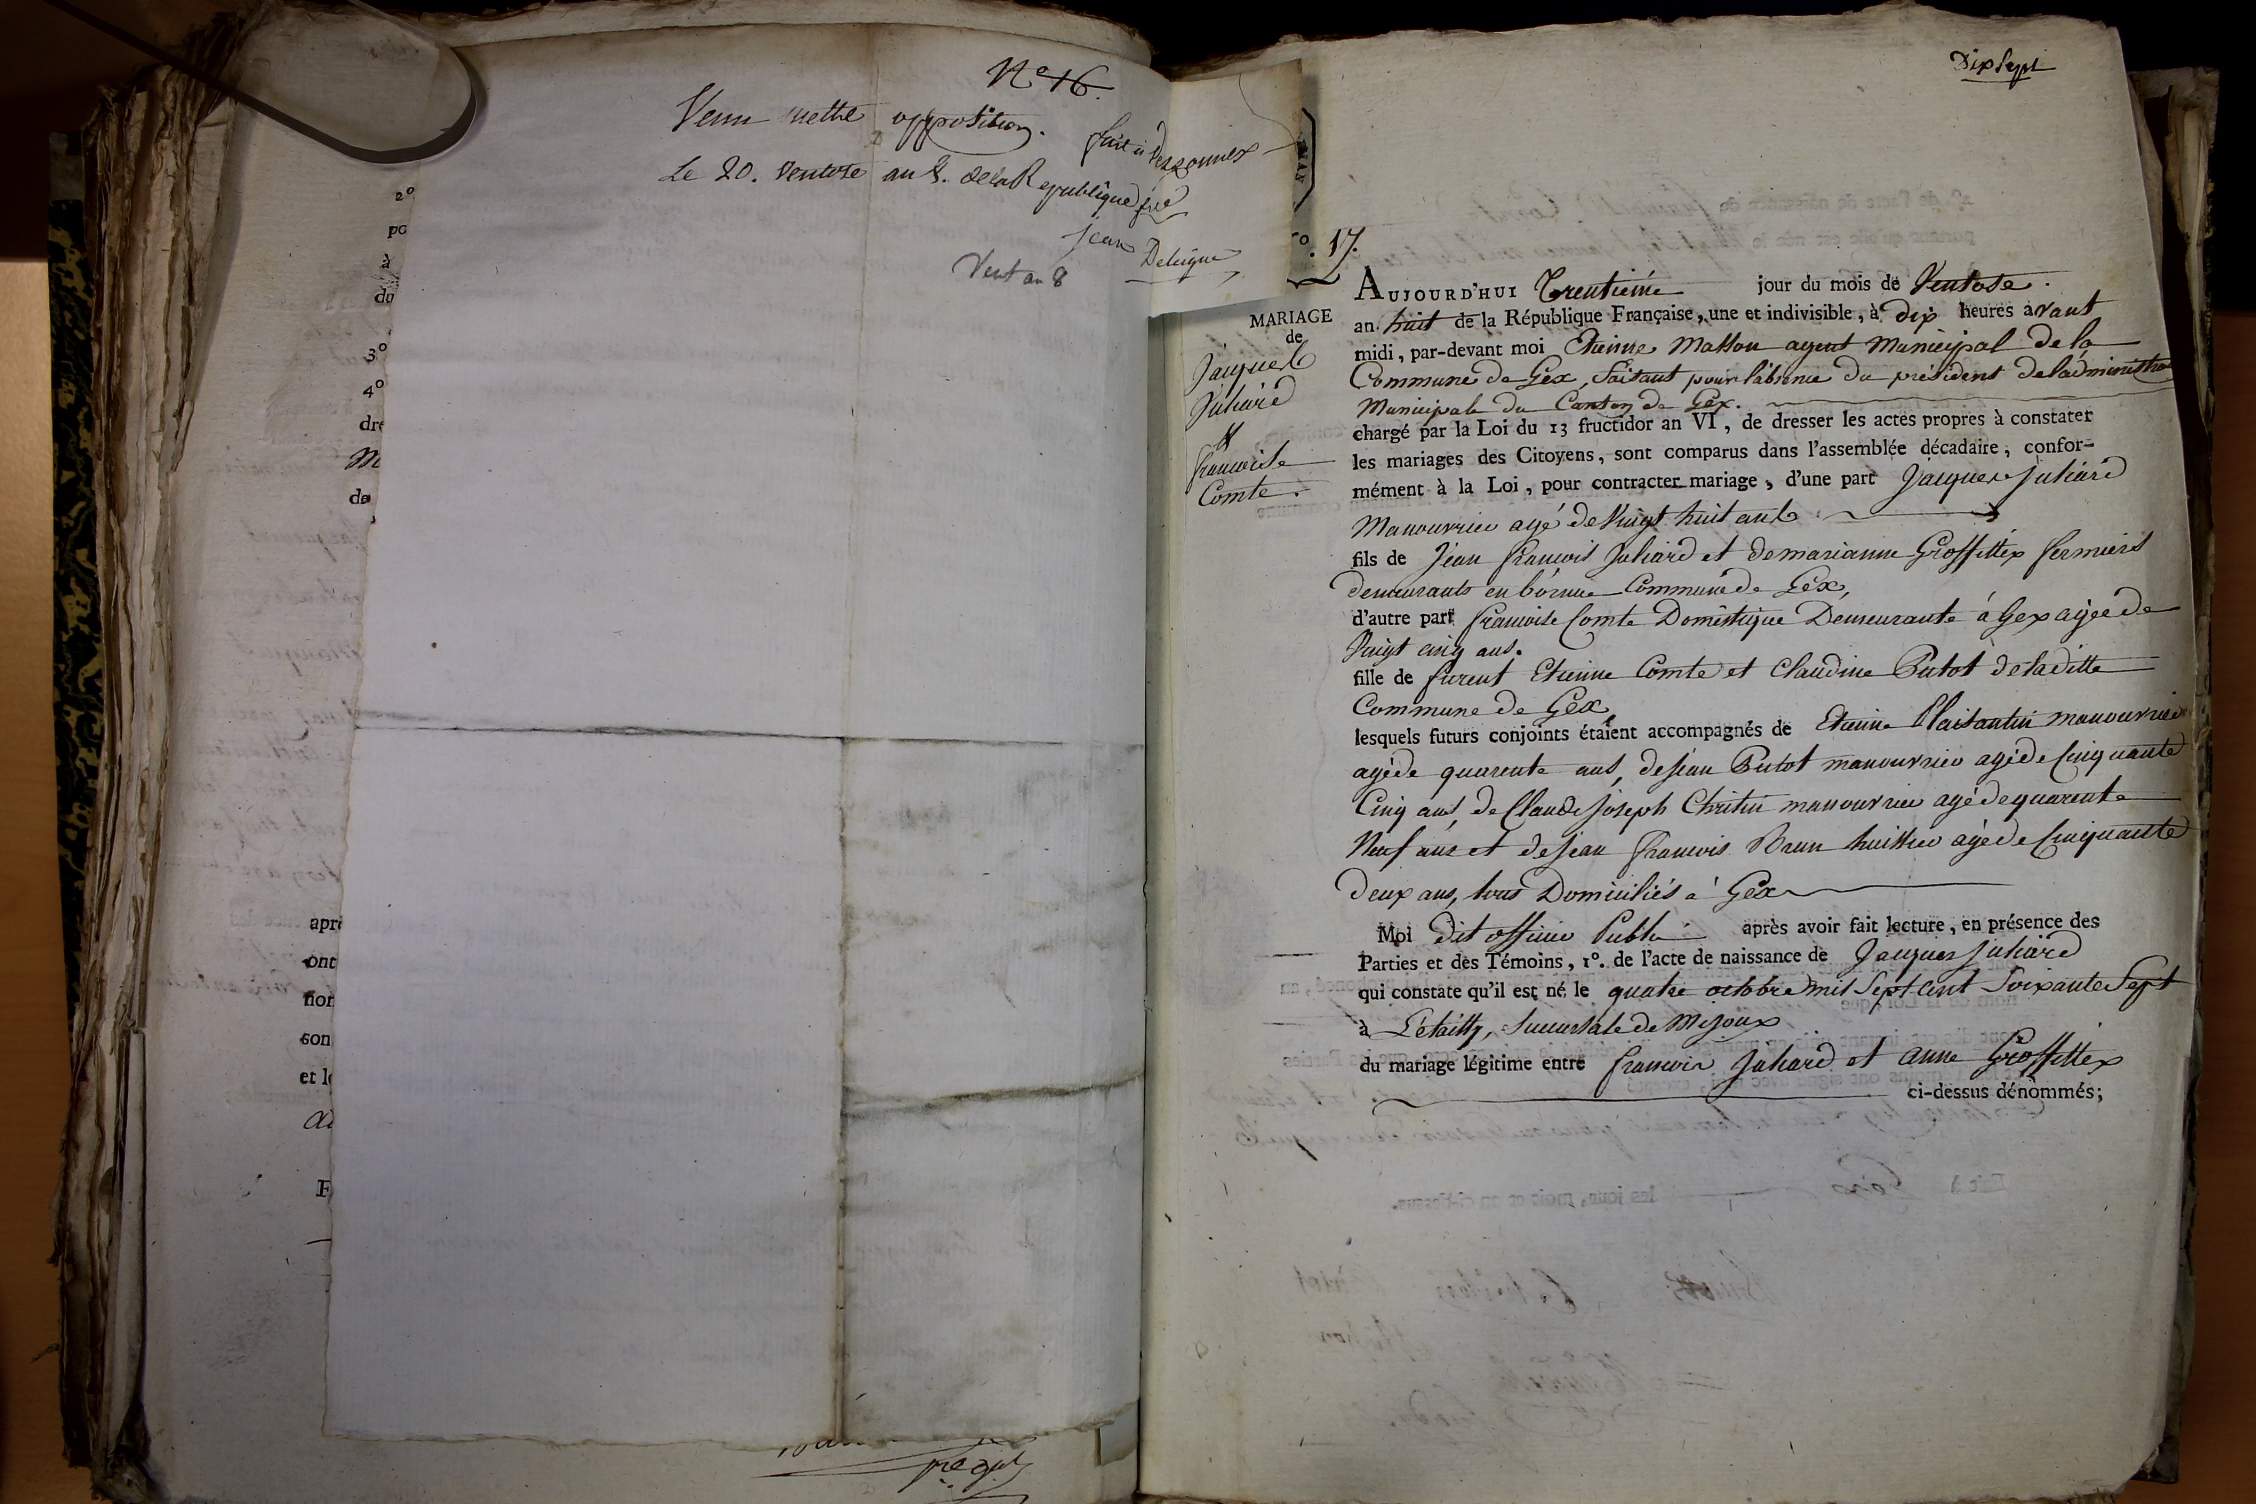 Nº 16.
Venu mettre opposition.
Le 20. ventose an 8. de la Republique
fait à Vezzonnex
jean
Vent an 8
2º
po
à
du
3º
4º
dre
M
de
apr
ont
nor
son
et l
F
Dix Sept
º. 17.
MARIAGE
de
Jacques
Juliard
&
francoise
Comte.
AUJOURD'HUI Trentiéme jour du mois de Ventose.
an huit de la République Française, une et indivisible, à dix heures avant
midi, par-devant moi Etienne Masson agent Municipal de la
Commune de Gex, faisant pour l'absence du président de l'administration
Municipale du Canton de Gex.
chargé par la Loi du 13 fructidor an VI, de dresser les actes propres à constater
les mariages des Citoyens, sont comparus dans l'assemblée décadaire, confor-
mément à la Loi, pour contracter mariage, d'une part Jacques Juliard
Manouvrier agé de Vingt huit ans
fils de Jean francois Juliard et de marianne Grossittex fermiers
demeurants en bornue Commune de Gex,
d'autre part francoise Comte Domestique Demeurante à Gex agée de
Vingt cinq ans.
fille de furent Etienne Comte et Claudine Putot de la ditte
Commune de Gex
lesquels futurs conjoints étaient accompagnés de Etienne Plaisantin manouvrier
agé de quarente ans, de jean Putot manouvrier agé de Cinquante
Cinq ans, de Claude joseph Christin manouvrier agé de quarente
Neuf ans et de jean francois Brun huissier agé de Cinquante
deux ans, tous Domiciliés à Gex
Moi dit officier Public après avoir fait lecture, en présence des
Parties et des Témoins, 1º. de l'acte de naissance de Jacques Juliard
qui constate qu'il est né le quatre octobre mil Sept Cent Soixante Sept
à Lélaissy, Succursale de Mijoux
du mariage légitime entre francois Juliard et anne Grossittex
ci-dessus dénommés;